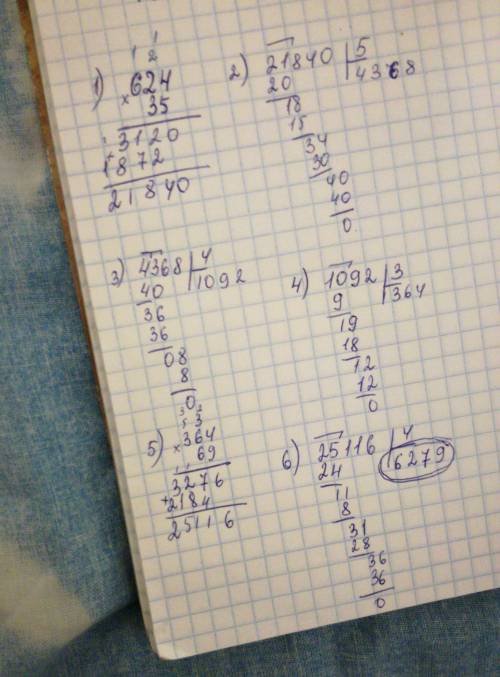 1) 1 1
2
× 624
35
3120
+ 1872
21840
2) 21840 | 5
20 4368
18
15
34
30
40
40
0
3) 4368 | 4
40 1092
36
36
08
8
0
4) 1092 | 3
9 364
19
18
12
12
0
5) 3 2
5 3
× 364
69
1 1
3276
+ 2184
25116
6) 25116 | 4
24 6279
11
8
31
28
36
36
0